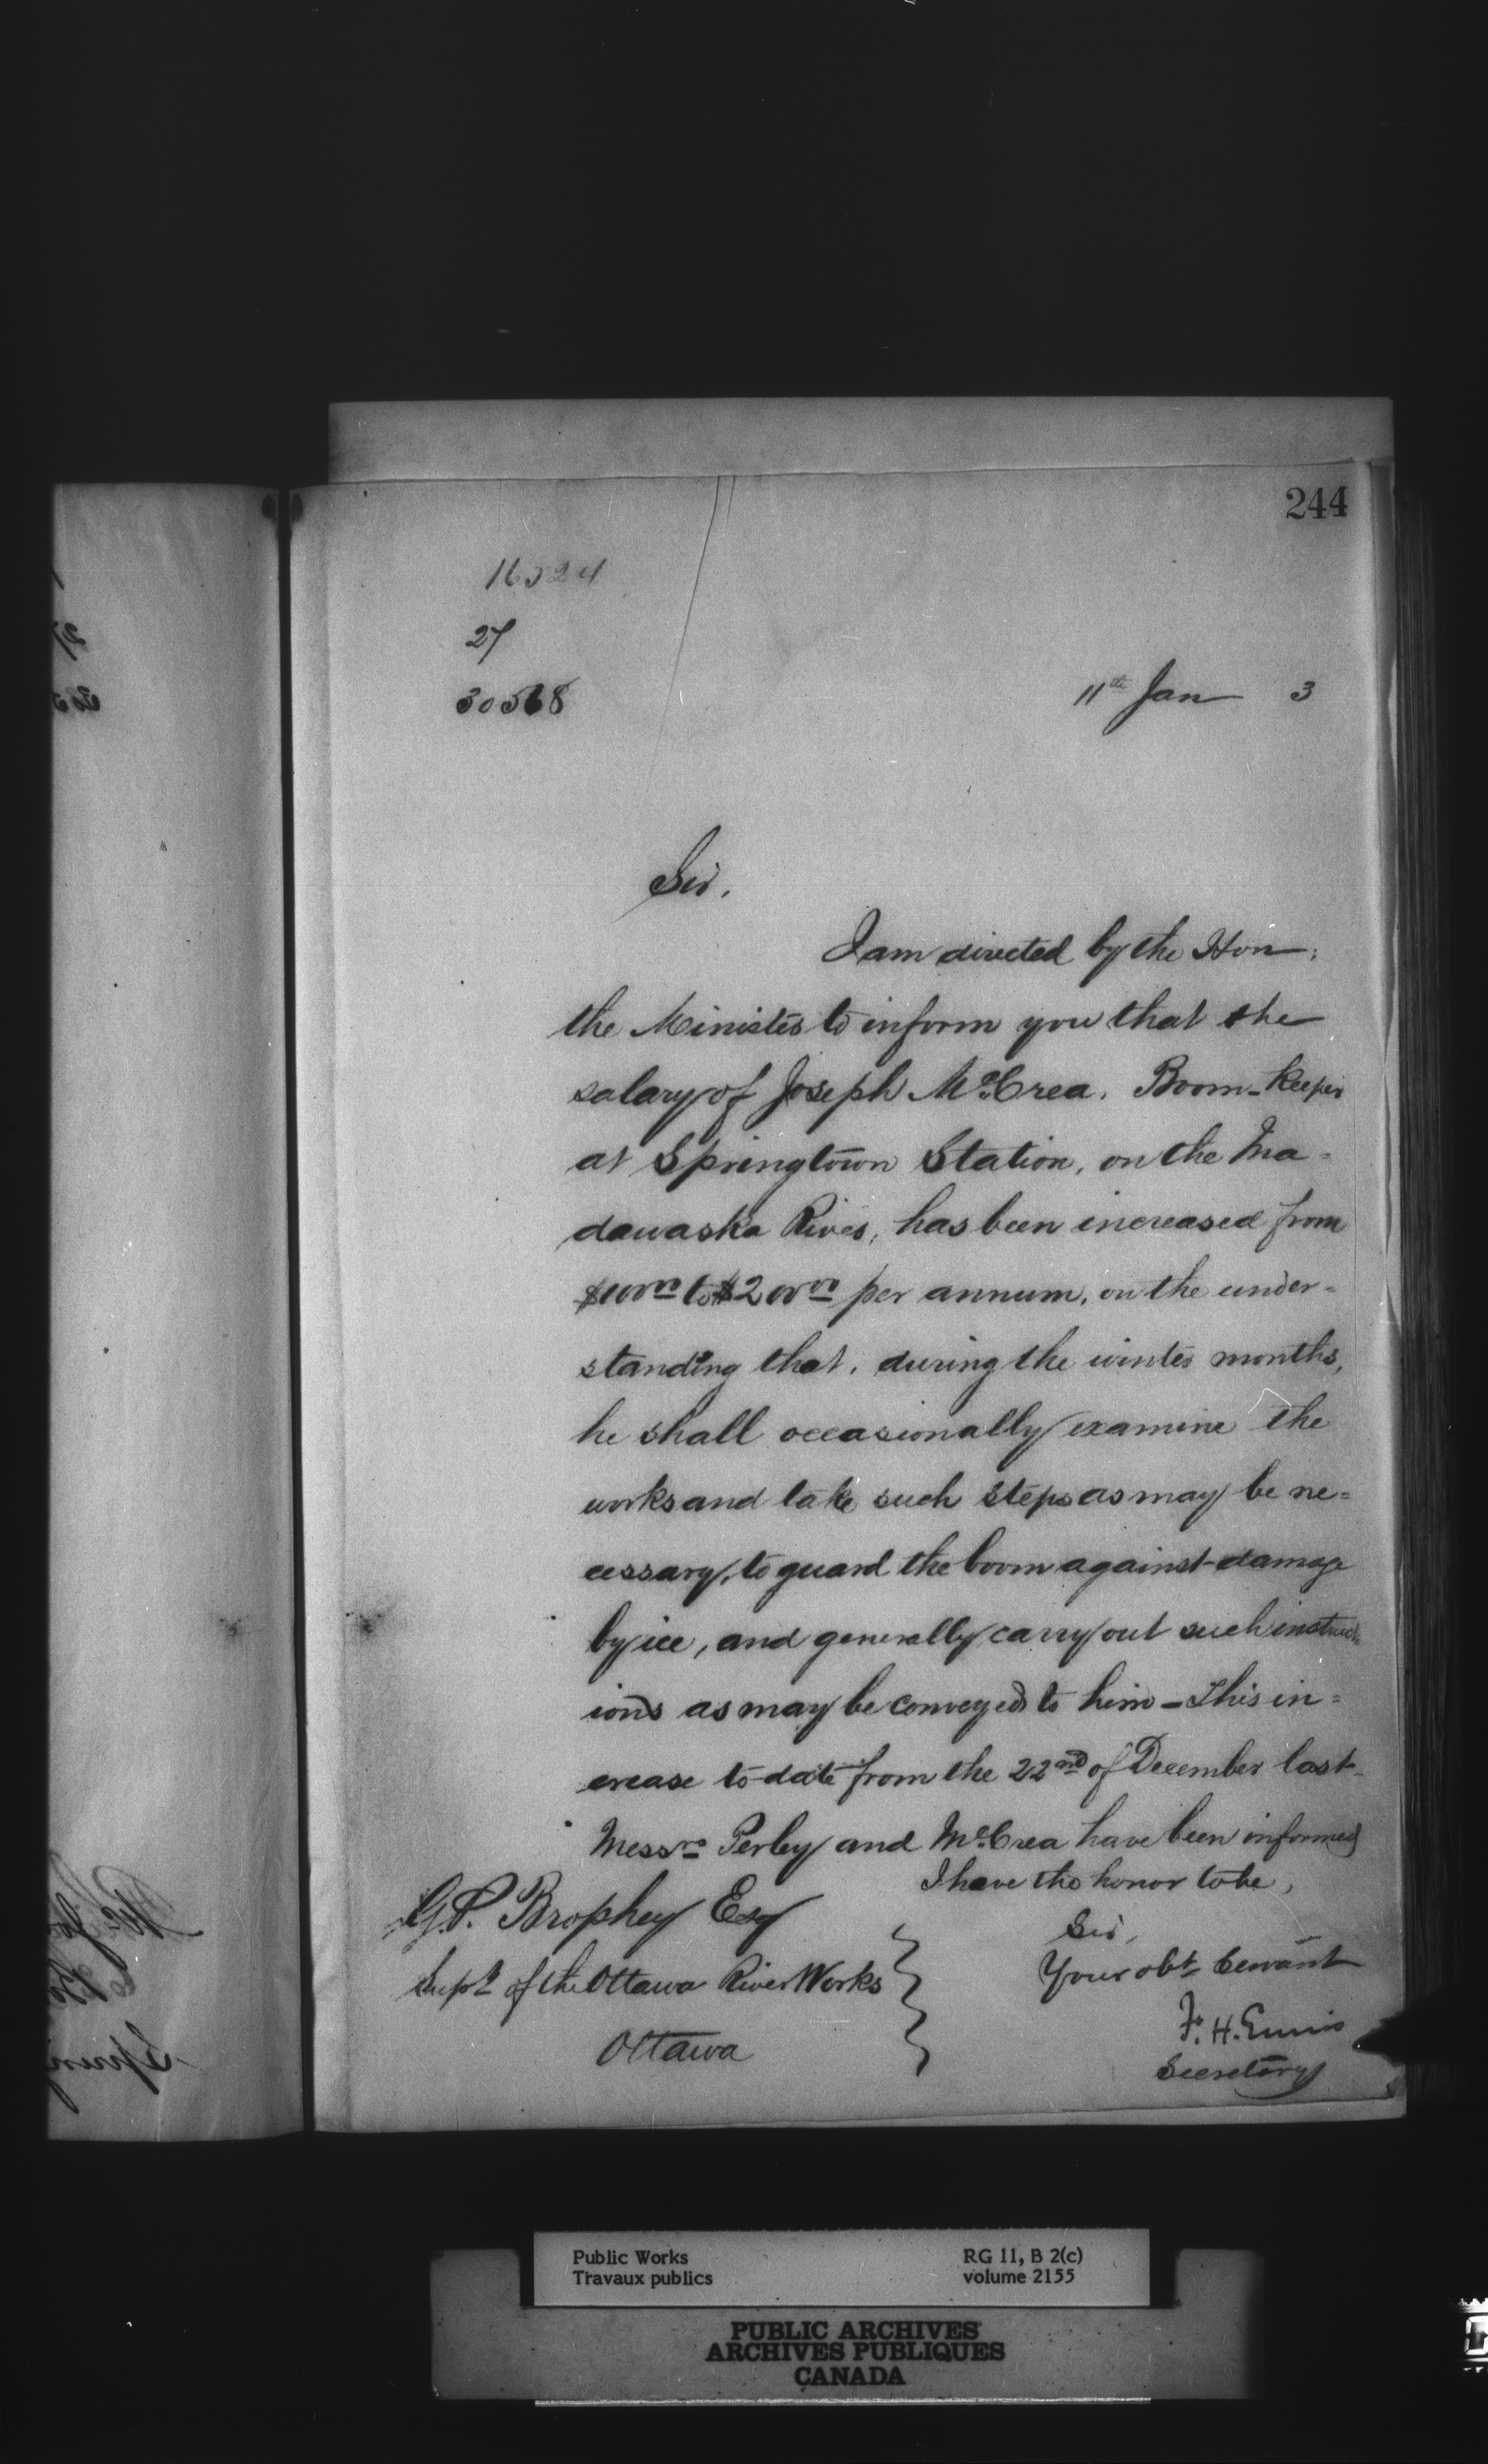 244
16324
27
30568
11th Jan 3
Sir,
I am directed by the Hon:
the Minister to inform you that the
salary of Joseph McCrea, Boom-Keeper
at Springtown Station, on the Ma=
dawaska River, has been increased from
$100.00 to $200.00 per annum, on the under=
standing that, during the winter months,
he shall occasionally examine the
works and take such steps as may be ne=
cessary, to guard the boom against damage
by ice, and generally carry out such instruct
ions as may be conveyed to him - This in=
crease to date from the 22nd of December last
Messrs Perley and McCrea have been informed
I have the honor to be,
Sir,
Your obt. Servant
F. H. Ennis
Secretary
G.P. Brophey Esq
Supt of the Ottawa River Works
Ottawa
Public Works
Travaux publics
RG 11, B 2(c)
volume 2155
PUBLIC ARCHIVES
ARCHIVES PUBLIQUES
CANADA